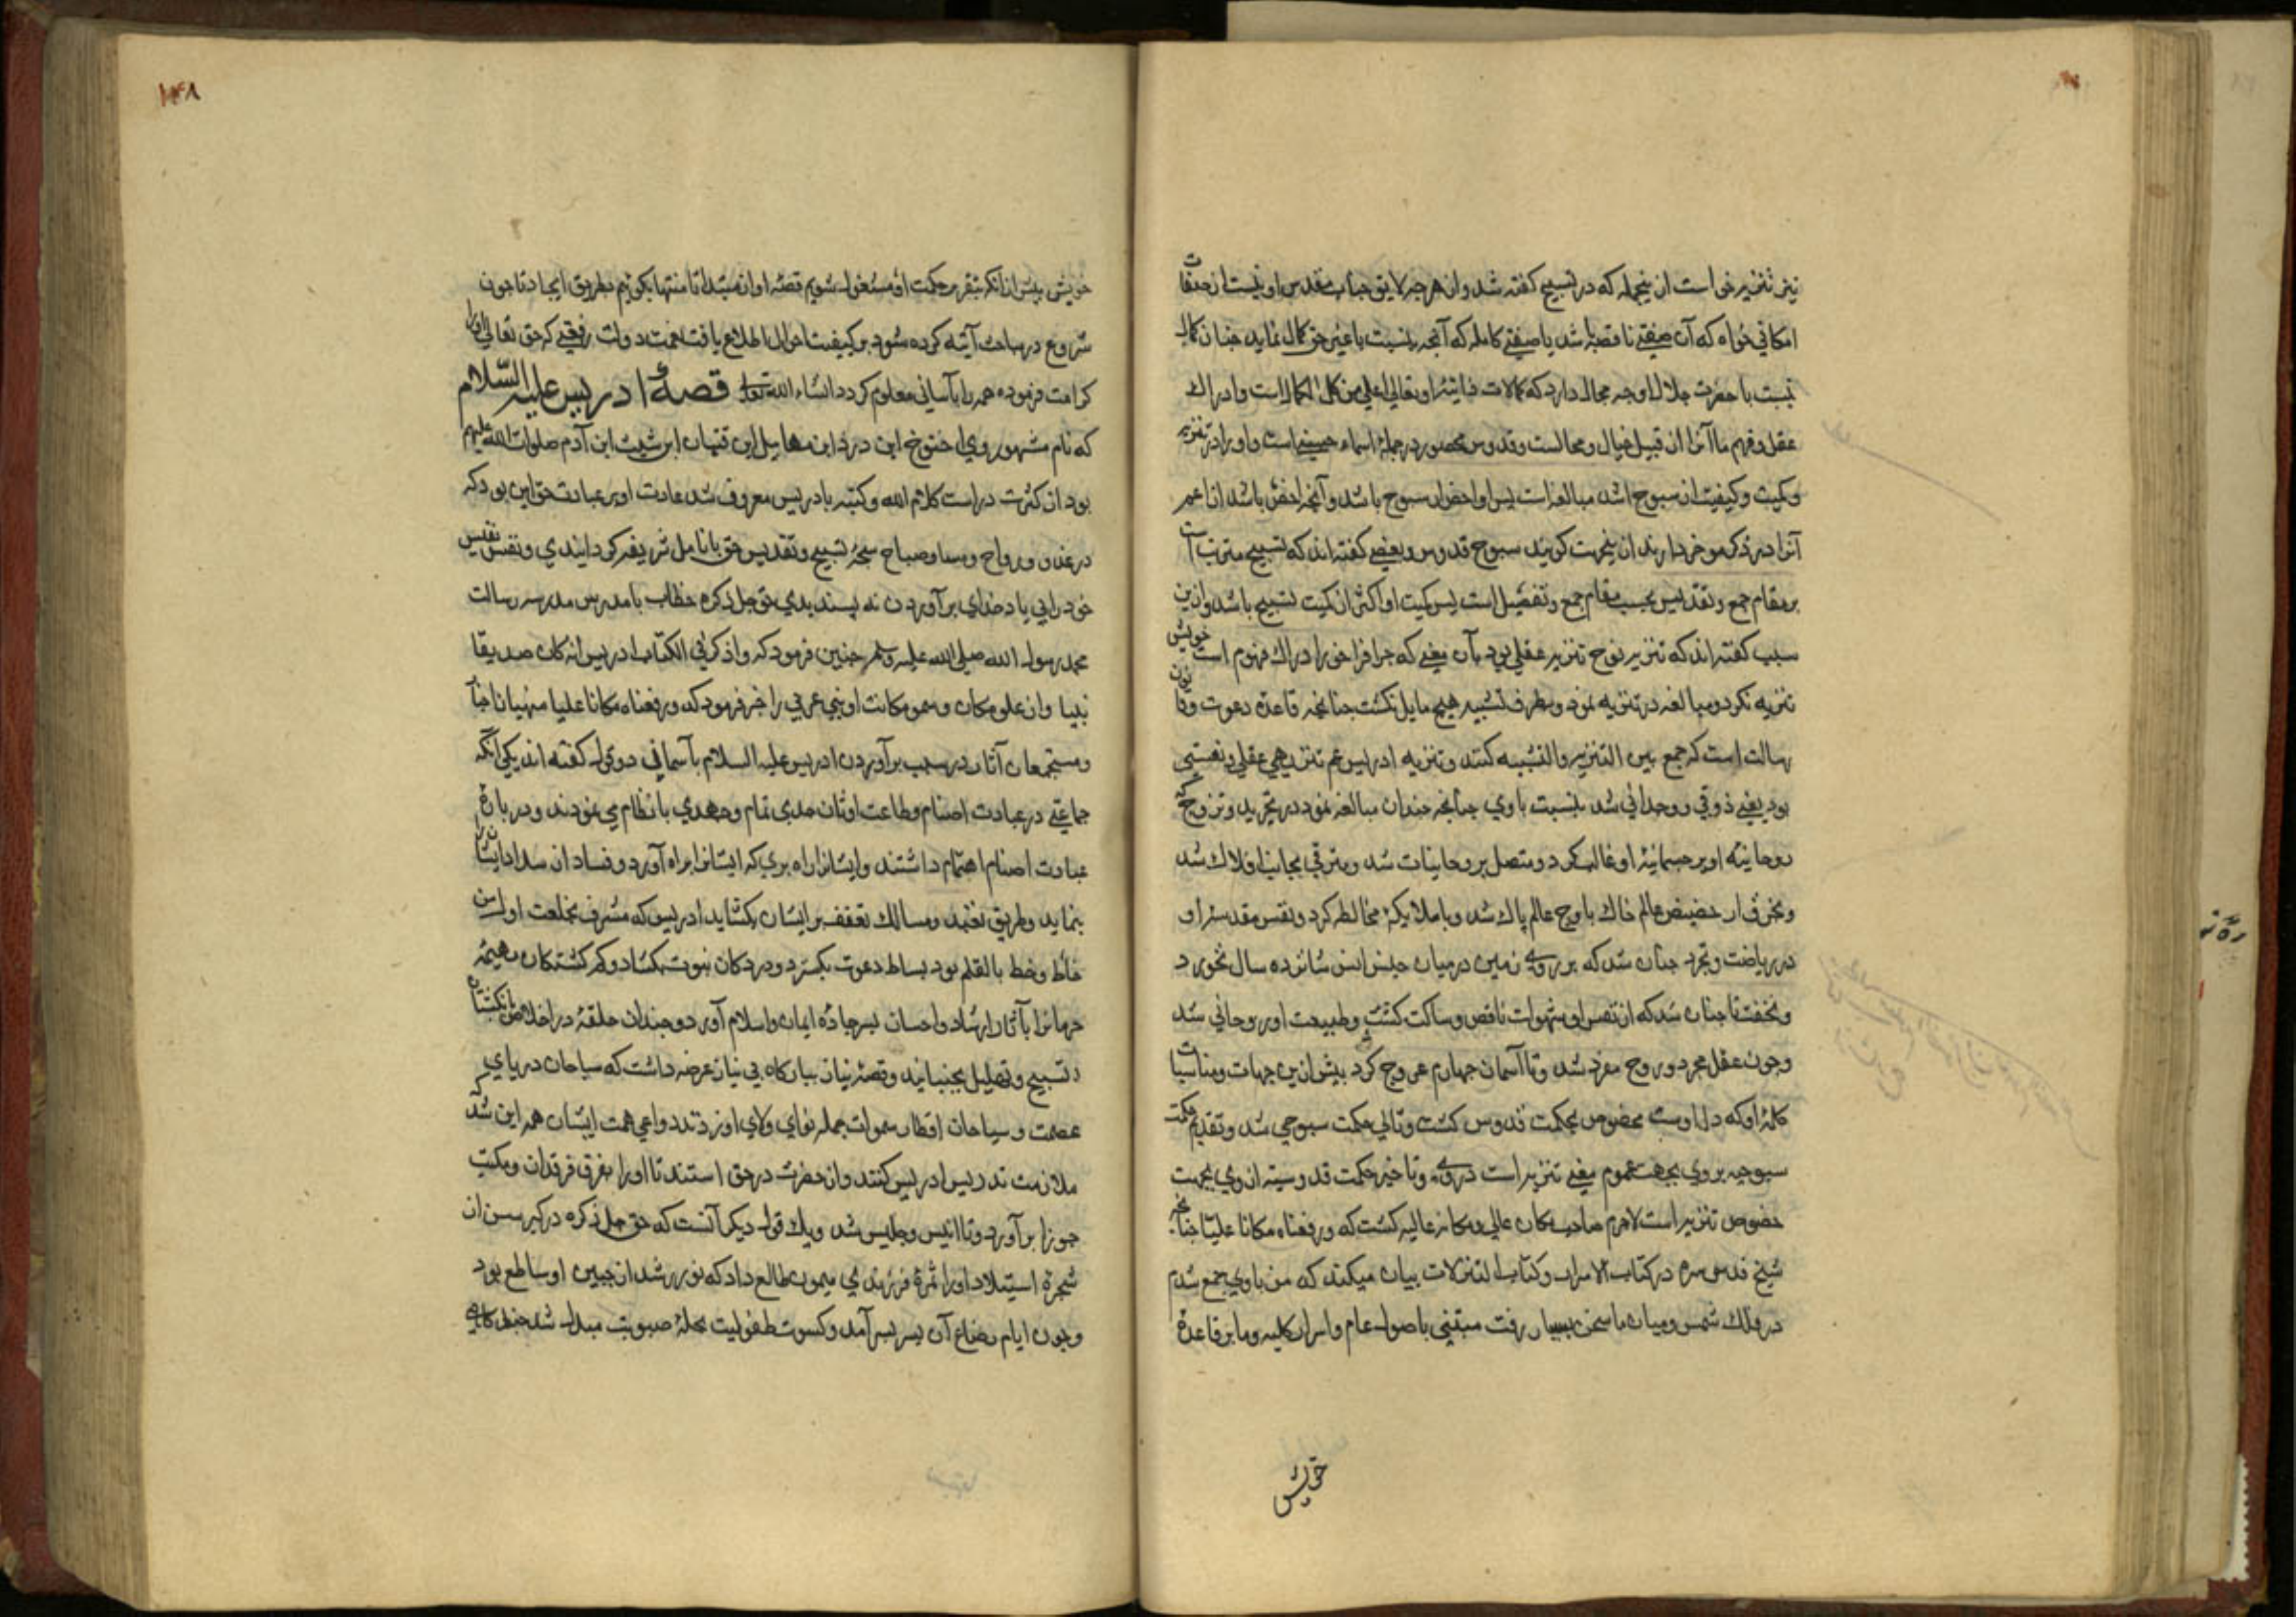 نیز تنزیه خواست از نجمله که در تسبیح کفته شد و از هر چه لایق جناب مقدس او نیست از صفات
امکانی خواه که آن صفتی ناقصه باشد یا صفتی کامله که آنچه بنسبت با غیر حق کمال نماید چنان کمال
نسبت با حضرت جلال او چه مجال دارد که کمالات ذاتیه او تعالی اعلی من کل الکمال است و ادراک
عقل و فهم ما آنرا از قبیل خیال و محالست و قدوس محصور در جمله اسماء حسنی است و او را در تنزیه
و کمیت و کیفیت از سبوح اشد مبالغه است پس او اخص از سبوح باشد و آنچه اخص باشد از اعم
آنرا در ذکر موخر دارند ازینجهت کویند سبوح قدوس و بعضی کفته اند که تسبیح مترتب است
بر مقام جمع و تقدیس بحسب مقام جمع و تفصیل است پس کمیت او اکثر از کمیت تسبیح باشد و ازین
سبب کفته اند که تنزیه نوح تنزیه عقلی بود بآن معنی که جز افراخور ادراک فهوم است خویش
تنزیه نکرد و مبالغه در تنزیه نمود و بطرف تشبیه هیچ مایل نکشت چنانچه قاعده دعوت و قانون
رسالت است که جمع بین التنزیه و التشبیه کنند و تنزیه ادریس عم تنزیهی عقلی و نفسی
بود یعنی ذوقی و وجدانی شد بنسبت با وی چنانچه چندان مبالغه نمود در تجرید و تروح که
روحانیه او بر جسمانیه او غالب کرد و متصل بروحانیات شد و مترقی بجانب افلاک شد
و بحرق از حضیض عالم خاک باوج عالم پاک شد و با ملایکه مخالطه کرد و نفس مقدسه او
در ریاضت و تجرد چنان شد که بر روی زمین درمیان جنس انس شانزده سال نخورد
و نخفت تا چنان شد که از نفس او شهوات ناقص و ساکت کشت و طبیعت او روحانی شد
و چون عقل مجرد و روح مفرد شد و تا آسمان چهارم عروج کرد بیش ازین جهات و مناسبات
کلمه او که دل اوست مخصوص بحکمت قدوس کشت و تالی حکمت سبوحی شد و تقدیم حکمت
سبوحیه بر وی بجهت عموم معنی تنزیه است در وی و تاخیر حکمت قدوسیه از وی بجهت
خصوص تنزیه است لاجرم صاحب مکان عالی و مکانه عالیه کشت که ورفعناه مکانا علیا چنانچه
شیخ قدس سره در کتاب الاسرا و کتاب التنزلات بیان میکند که من با وی جمع شدم
در فلک شمس و میان ما سخن بسیار رفت مبتنی باصول عام و اسرار کلیه و ما بر قاعده
خویش
۱۴۸
خویش پیش از انکه بتقریر حکمت او مشغول شویم قصه او از مبتدا تا منتها بکوییم بطریق ایجاد تا چون
شروع در مباحث آتیه کرده شود بر کیفیت احوال اطلاع یافته بهمت دولت رفیقی که حق تعالی او را
کرامت فرموده همه را بآسانی معلوم کردد انشاء الله تعالی قصۀ ادریس علیه السلام
که نام مشهور وی اخنوخ ابن درد ابن مهاییل ابن قتیهان ابن شیث ابن آدم صلوات الله علیهم
بود از کثرت دراست کلام الله و کتبه بادریس معروف شد عادت او در عبادت حق این بود که
در غدو و رواح و مسا و صباح سبحۀ تسبیح و تقدیس حق بانامل شریفه کردانیدی و نفس نفیس
خود را بی یاد خدای برآوردن نه پسندیدی حق جل ذکره خطاب با مدرس مدرسه رسالت
محمد رسول الله صلی الله علیه وسلم چنین فرمود که واذکر فی الکتاب ادریس انه کان صدیقا
نبیا و از علو مکان و سمو مکانت او نبی عربی را خبر فرمود که ورفعناه مکانا علیا منهیان اخبار
و مستجمعان آثار در سبب برآوردن ادریس علیه السلام بآسمان دو قول کفته اند یکی آنکه
جماعتی در عبادت اصنام و طاعت اوثان جدی تمام و جهدی بانظام می نمودند و در باره
عبادت اصنام اهتمام داشتند و ایشانرا راه بری که ایشانرا براه آورد و فساد از سداد ایشانرا
بنماید و طریق تعبد و مسالک تعفف بر ایشان بکشاید ادریس که مشرف بخلعت اول من
خاط و خط بالقلم بود بساط دعوت بکسترد و در دکان نبوت بکشاد و کم کشتکان بهیمه
جهانرا بآثار ارشاد و احسان بر جاده ایمان و اسلام آورد و چندان حلقۀ در اخلاص بانکشتان
تسبیح و تهلیل بجنبانید و قصۀ نیاز ببارکاه بی نیاز عرضه داشت که سباحان دریای
عصمت و سیاحان اقطار سموات جمله نوای ولای او زدند دواعی همت ایشان همه این شد که
ملازمت تدریس ادریس کنند و از حضرت در حق استند تا او را بفرق فرقدان و مکتب
جوزا برآورد و تا انیس و جلیس شد و یک قول دیکر آنست که حق جل ذکره در کبر سن از
شجرۀ استیلاد او را ثمرۀ فرزندی میمون طالع داد که نور رشد از جبین او ساطع بود
و چون ایام رضاع آن پسر بسر آمد و کسوت طفولیت بحلۀ صبوبت مبدل شد